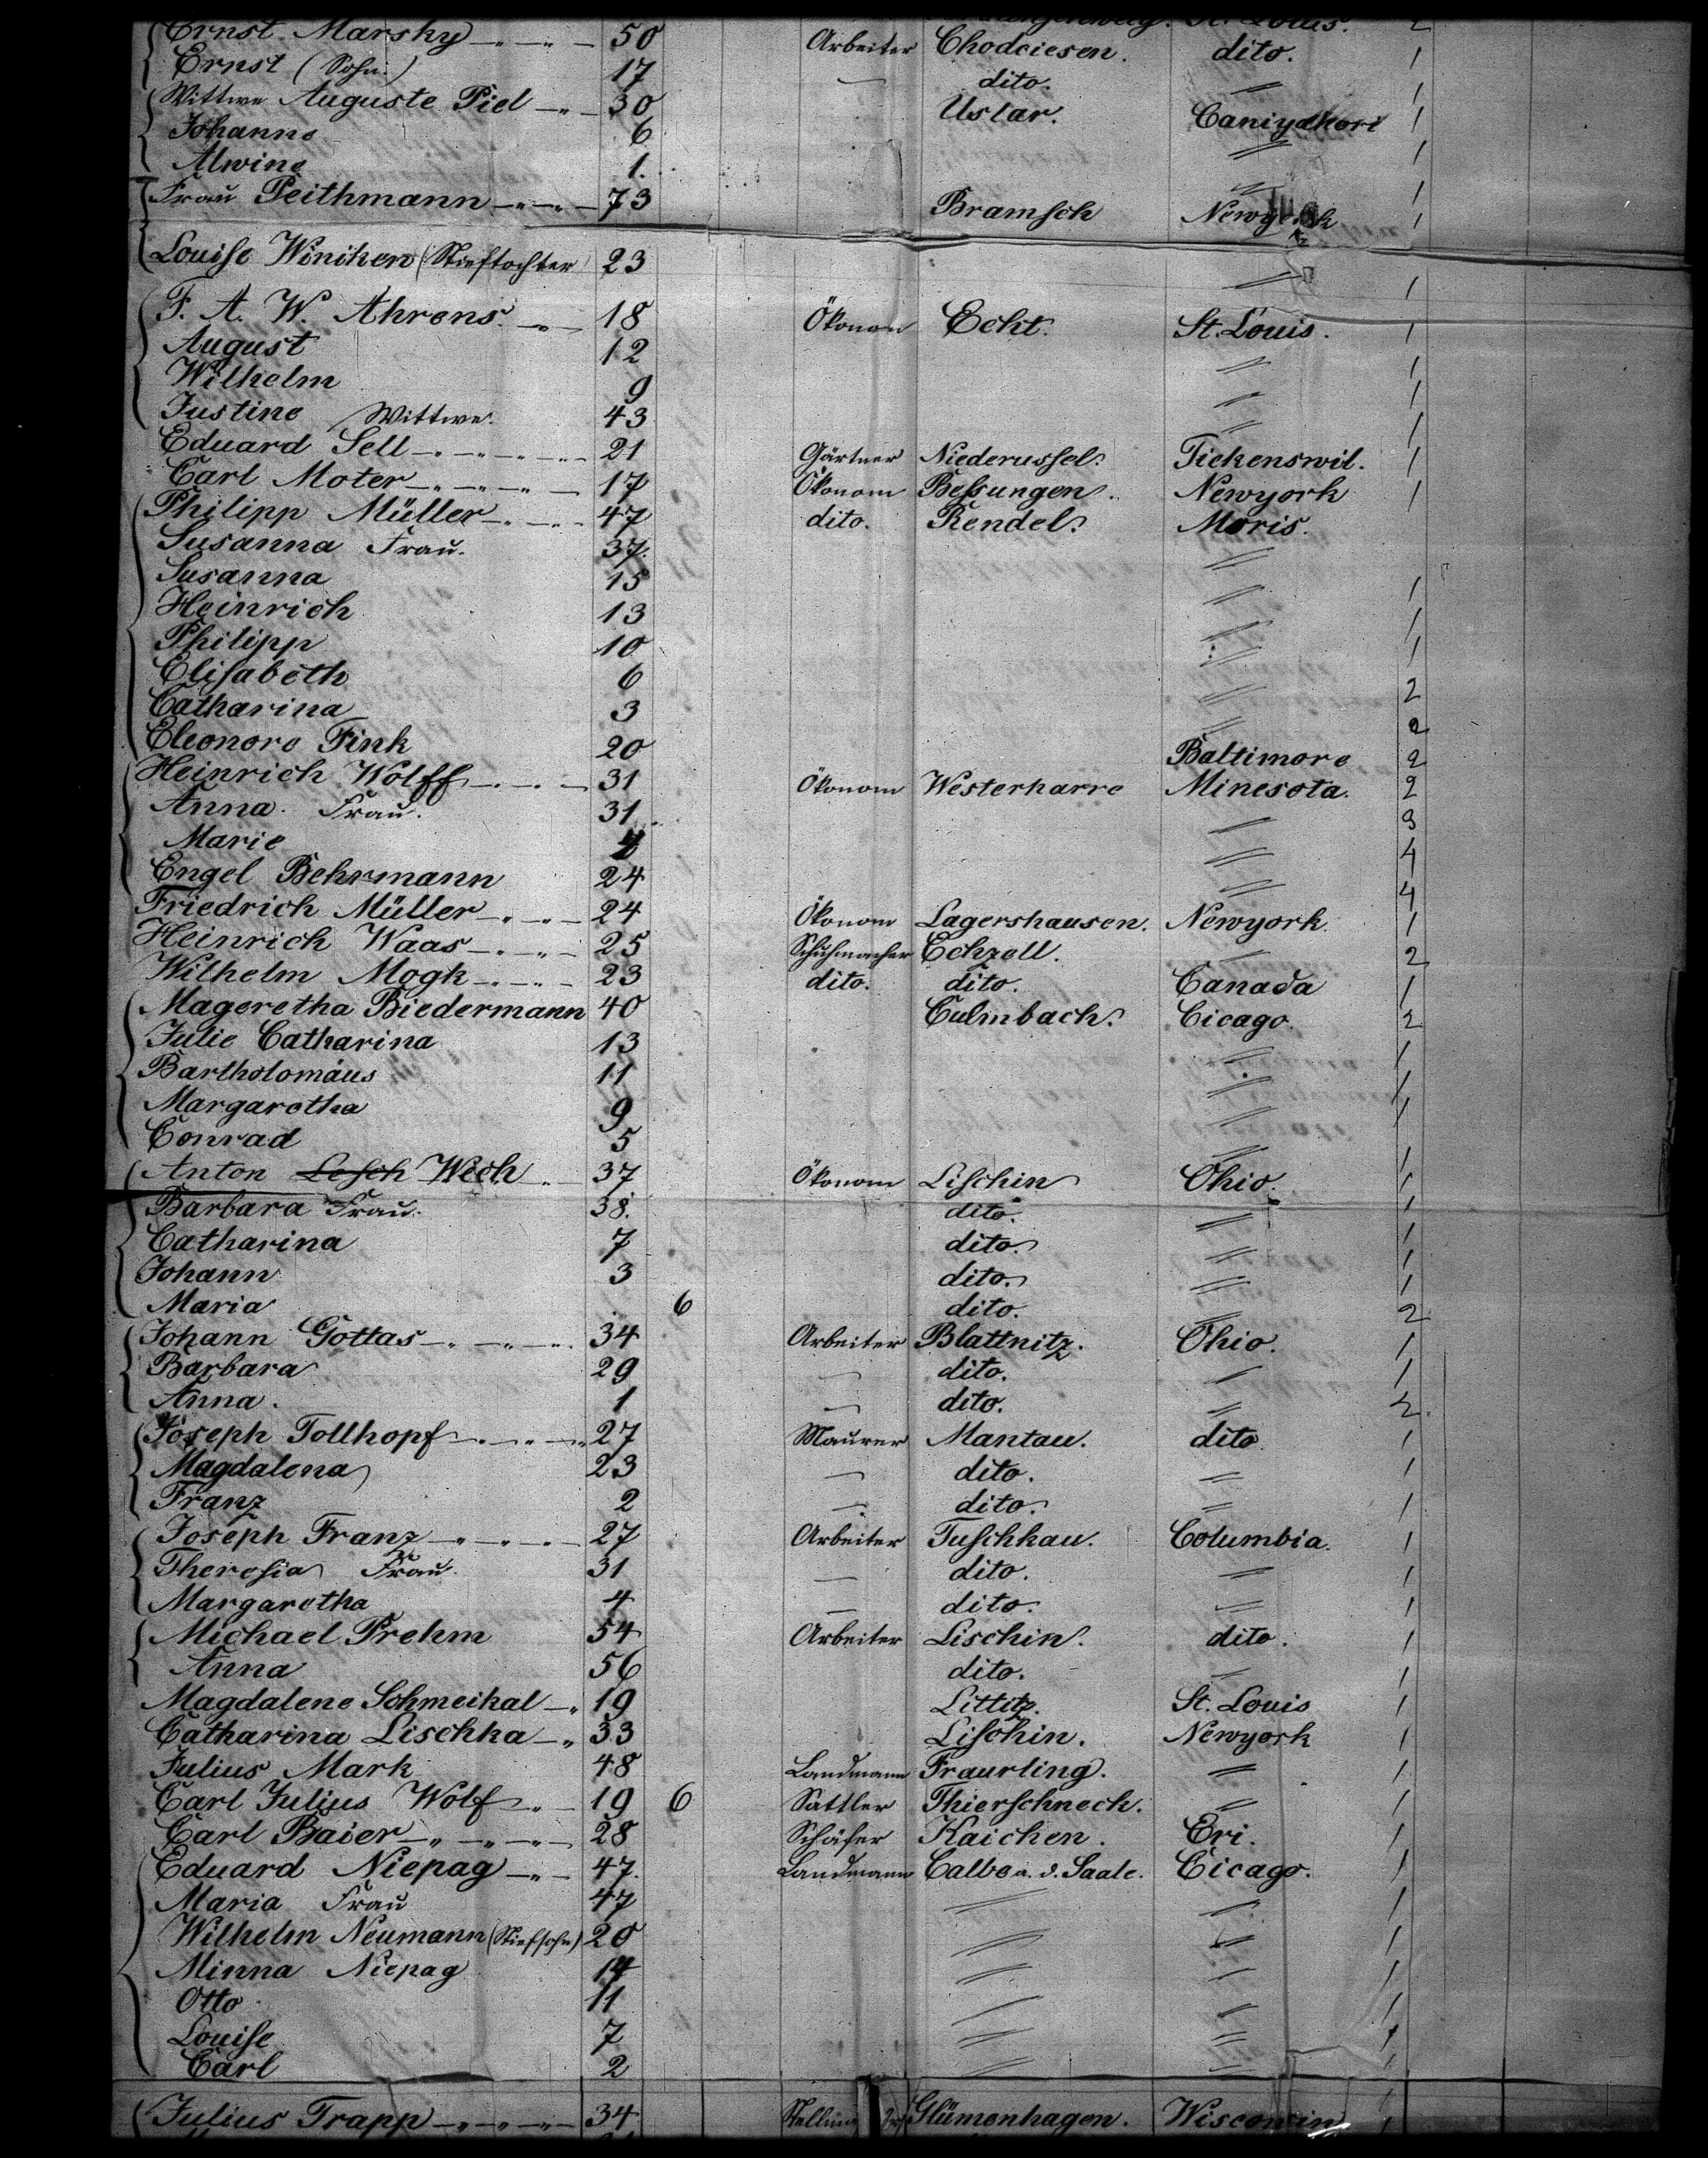 St. Louis. 2
Ernst Marsky 50 Arbeiter Chodciesen. dito. 1
Ernst (Sohn.) 17 — dito. " 1
Wittwe Auguste Piel 30 Uslar. 1
Johanne 6 " 1
Alwine 1. " 1
Frau Peithmann 73 Bramsch Newyork 1
Louise Winiken (Stieftochter) 23 " 1
F. A. W. Ahrens 18 Ökonom Echt. St. Louis. 1
August 12 " 1
Wilhelm 9 " 1
Justine Wittwe. 43 " 1
Eduard Sell 21 Gärtner Niederussel. Tickenswil. 1
Carl Moter 17 Ökonom Bessungen. Newyork 1
Philipp Müller 47 dito. Rendel. Moris.
Susanna Frau. 37. "
Susanna 15 " 1
Heinrich 13 " 1
Philipp 10 " 1
Elisabeth 6 " 2
Catharina 3 " 2
Eleonore Fink 20 Baltimore 2
Heinrich Wolff 31 Ökonom Westerharre Minesota. 2
Anna. Frau. 31 " 3
Marie " 4
Engel Behrmann 24 " 4
Friedrich Müller 24 Ökonom Lagershausen. Newyork. 1
Heinrich Waas 25 Schuhmacher Echzell. " 2
Wilhelm Mogk 23 dito. dito. Canada 1
Mageretha Biedermann 40 Culmbach. Cicago. 2
Julie Catharina 13 " 1
Bartholomäus 11 " 1
Margaretha 9 " 1
Conrad 5 " 1
Anton Lesch Wech 37 Ökonom Lischin Ohio. 1
Barbara Frau. 38. dito. " 1
Catharina 7 dito. " 1
Johann 3 dito. " 1
Maria 6 dito. " 2
Johann Gottas 34 Arbeiter Blattnitz. Ohio. 1
Barbara 29 — dito. " 1
Anna. 1 — dito. " 2.
Joseph Tollhopf 27 Maurer Mantau. dito. 1
Magdalena 23 — dito. " 1
Franz 2 — dito. " 1
Joseph Franz 27 Arbeiter Tuschkau. Columbia. 1
Theresia Frau. 31 — dito. " 1
Margaretha 4 — dito. " 1
Michael Prehm 54 Arbeiter Lischin. dito. 1
Anna 56 dito. " 1
Magdalene Schmeikal 19 Littitz. St. Louis 1
Catharina Lischka 33 Lischin. Newyork 1
Julius Mark 48 Landmann Fraurling. " 1
Carl Julius Wolf 19 6 Sattler Thierschneck. " 1
Carl Baier 28 Schäfer Kaichen. Eri. 1
Eduard Niepag 47. Landmann Calbe a. d. Saale. Cicago. 1
Maria Frau 47 " " 1
Wilhelm Neumann (Stiefsohn) 20 " " 1
Minna Niepag 14 " " 1
Otto 11 " " 1
Louise 7 " " 1
Carl 2 " " 1
Julius Trapp 34 Glümenhagen. Wisconsin 1